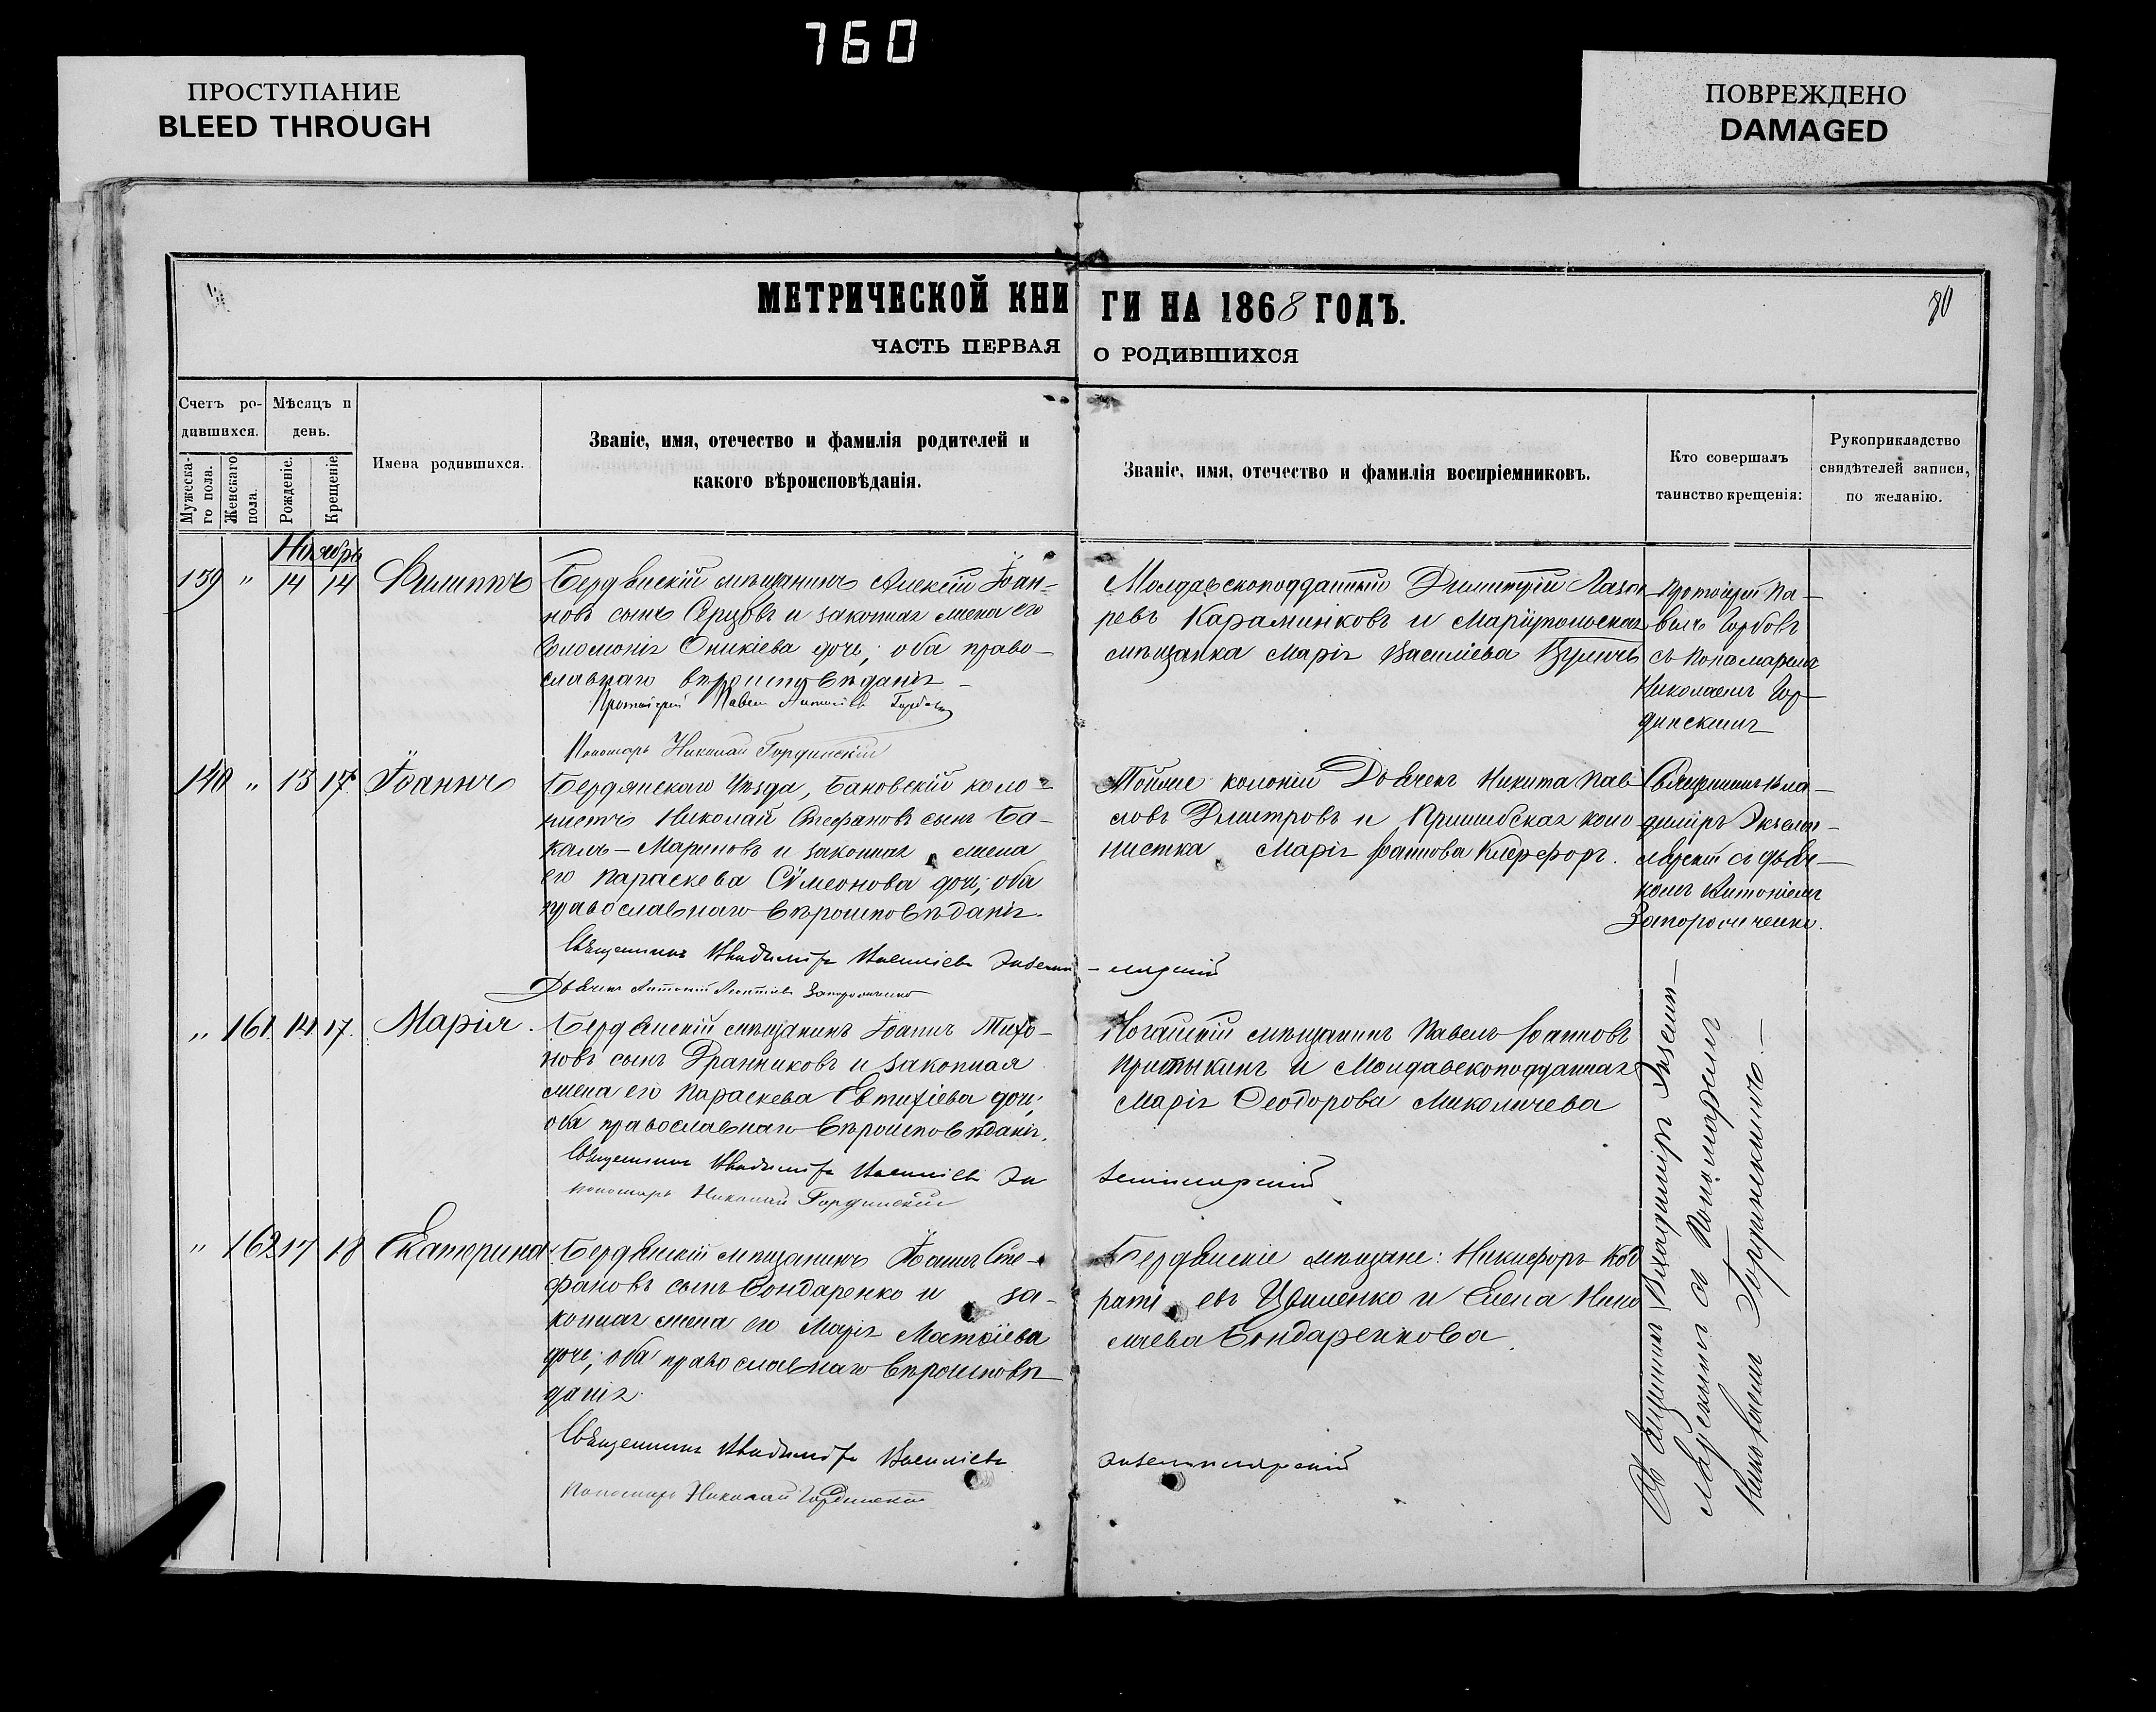 760
ПРОСТУПАНИЕ
BLEED THROUGH
ПОВРЕЖДЕНО
DAMAGED
МЕТРИЧЕСКОЙ КНИ ГИ НА 1868 ГОДЪ.
80
ЧАСТЬ ПЕРВАЯ О РОДИВШИХСЯ
Счетъ ро-
дившихся.
Мѣсяцъ и
день.
Мужеска-
го пола.
Женскаго
пола.
Рожденіе.
Крещеніе
Имена родившихся.
Званіе, имя, отечество и фамилія родителей и
какого вѣроисповѣданія.
Званіе, имя, отечество и фамилія воспріемниковъ.
Кто совершалъ
таинство крещенія:
Рукоприкладство
свидѣтелей записи,
по желанію.
Ноябрь
139 " 14 14 Филиппъ
Бердянскій мѣщанинъ Алексій Іоан-
новъ сынъ и законная жена его
Соломонія дочь; оба право-
славнаго вѣроисповѣданія
Протоіерей Павелъ Горбовъ
Пономарь Николай Гординскій
Молдавскоподданный Димитрій Лаза-
ревъ Караминковъ и Маріупольская
мѣщанка Марія Василіева
Протоіерей Па-
велъ Горбовъ
съ Пономаремъ
Николаемъ Гор-
динскимъ
140 " 13 17 Іоаннъ
Бердянскаго Уѣзда, Бановскій коло-
нистъ Николай Стефановъ сынъ Ба-
Мариновъ и законная жена
его Параскева Сѵмеонова дочь; оба
православнаго вѣроисповѣданія.
Священникъ Владиміръ Василіевъ
Дьячекъ Антоній Леонтіевъ Запорожченко
Тойже колоніи Дьячекъ Никита Пав-
ловъ Димитровъ и Пришибская коло-
нистка Марія Іоаннова
Священникъ Вла-
диміръ
съ дьяч-
комъ Антоніемъ
Запорожченко.
" 161 14 17. Марія.
Бердянскій мѣщанинъ Іоаннъ Тихо-
новъ сынъ Дранниковъ и законная
жена его Параскева Евтихіева дочь;
оба православнаго вѣроисповѣданія.
Священникъ Владиміръ Василіевъ
Пономарь Николай Гординскій
Ногайскій мѣщанинъ Павелъ Іоанновъ
Притыкинъ и Молдавскоподданная
Марія Ѳеодорова Миколичева
" 162 17 18 Екатерина
Бердянскій мѣщанинъ Іоаннъ Сте-
фановъ сынъ Бондаренко и за-
конная жена его Марія Матѳіева
дочь; оба православнаго вѣроисповѣ-
данія.
Священникъ Владиміръ Василіевъ
Пономарь Николай Гординскій
Бердянскіе мѣщане: Никифоръ Код-
ратіевъ Цвиленко и Елена Нико-
лаева Бондаренкова.
Священникъ Владиміръ
съ Пономаремъ
Николаемъ Гординскимъ.